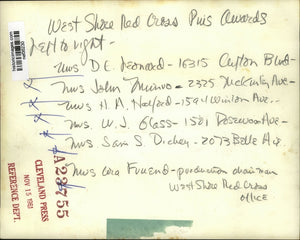 West Shore Red Cross Pins Awards
Left to right -
Mrs D.E. Leonard - 16315 Clifton Blvd -
Mrs John Munro - 2325 McKinley Ave -
Mrs H. A. - 1594 Winton Ave -
Mrs. W. J. Glass - 1501 Rosewood Ave -
Mrs Sam S. Dickey - 2073 Belle Av.
Mrs Cora Friend - production chairman
West Shore Red Cross
office
A23755
CLEVELAND PRESS
NOV 15 1951
REFERENCE DEPT.